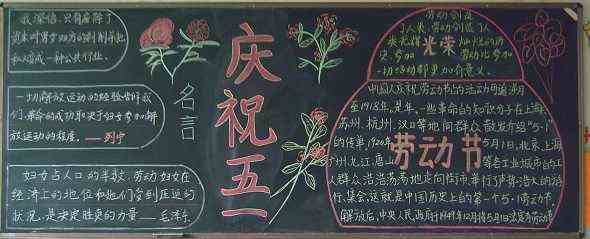 我深信，只有废除了
资本对男女双方的剥削并把
私人的家务劳动变成一种公共的行业
一切解放运动的经验告诉我
们，革命的成功取决于妇女参加解
放运动的程度。——列宁
妇女占人口的半数，劳动妇女在
经济上的地位和她们受到压迫的
状况，是决定胜负的力量——毛泽东
名言
庆祝五一
劳动创造
光荣
劳动节
中国人民庆祝劳动节的活动可追溯
至1918年。是年，一些革命的知识分子在上海、
苏州、杭州、汉口等地向群众散发介绍"5·1"
的传单。1920年5月1日，北京、上海、
广州、九江、唐山等各工业城市的工
人群众浩浩荡荡地走向街市、举行了声势浩大的游
行、集会，这就是中国历史上的第一个5·1劳动节。
解放后，中央人民政府于1949年12月将5月1日定为劳动节